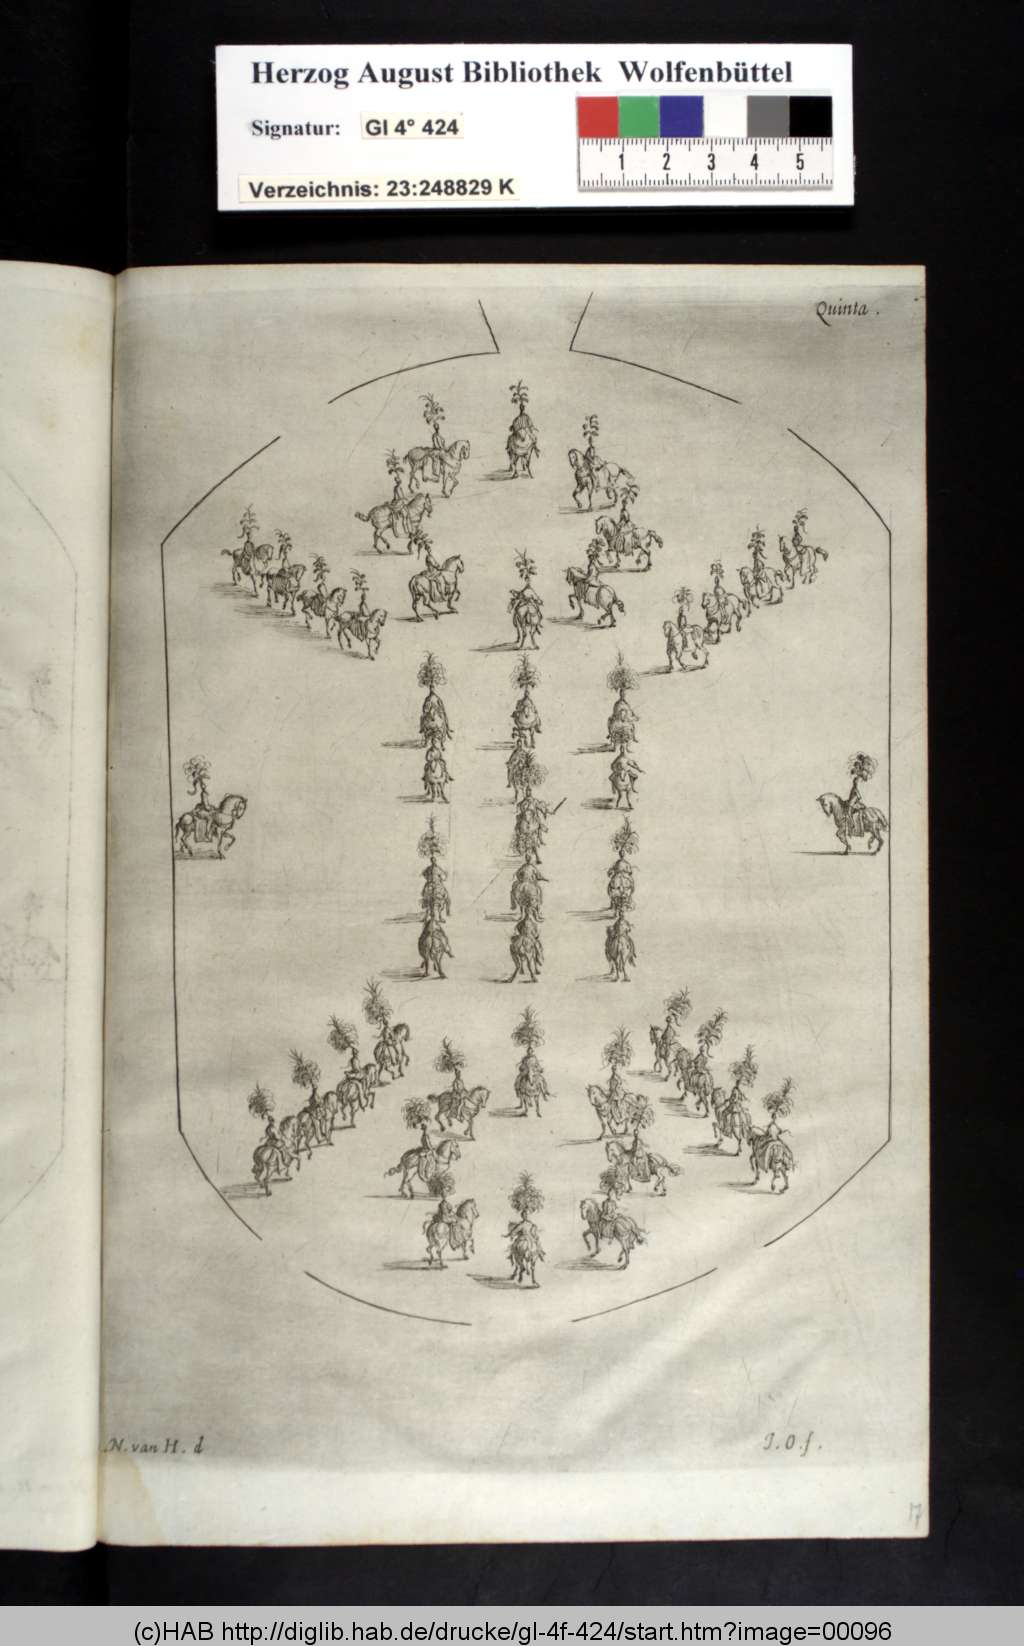 Herzog August Bibliothek Wolfenbüttel
Signatur: Gl 4° 424
1 2 3 4 5
Verzeichnis: 23:248829 K
Quinta.
N. van H. d
J. O. f.
17
(c)HAB http://diglib.hab.de/drucke/gl-4f-424/start.htm?image=00096